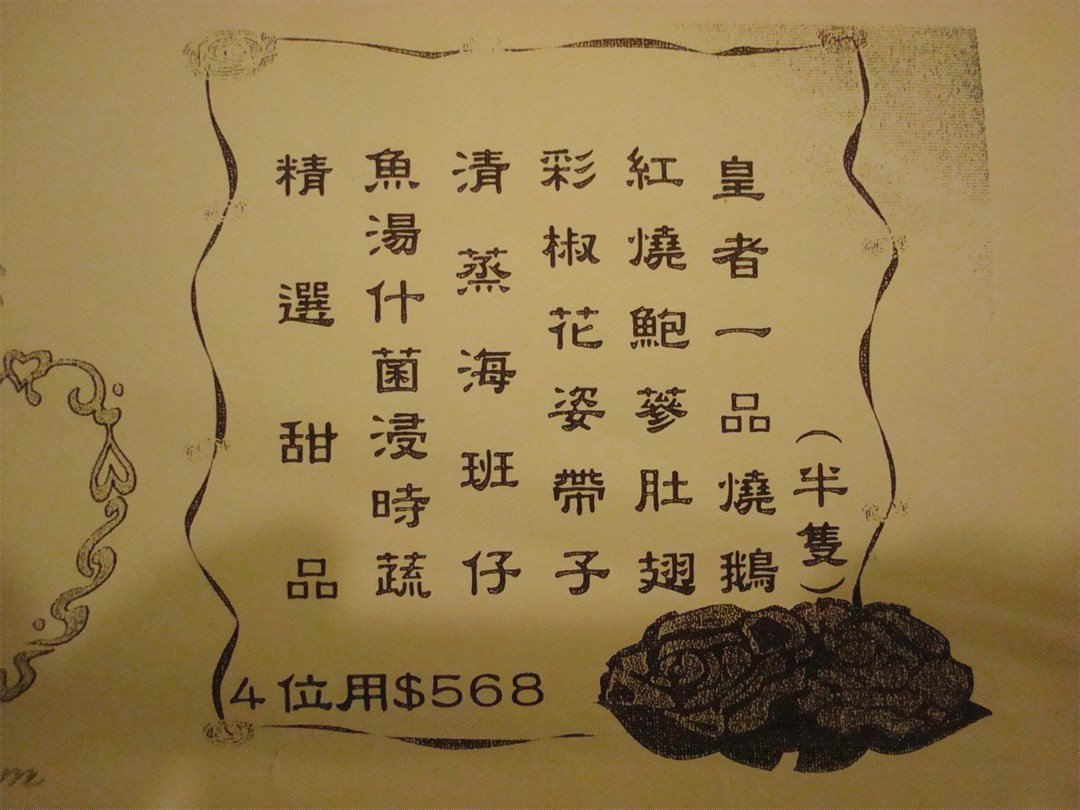 皇者一品燒鵝
(半隻)
紅燒鮑蔘肚翅
彩椒花姿帶子
清蒸海班仔
魚湯什菌浸時蔬
精選甜品
4位用$568